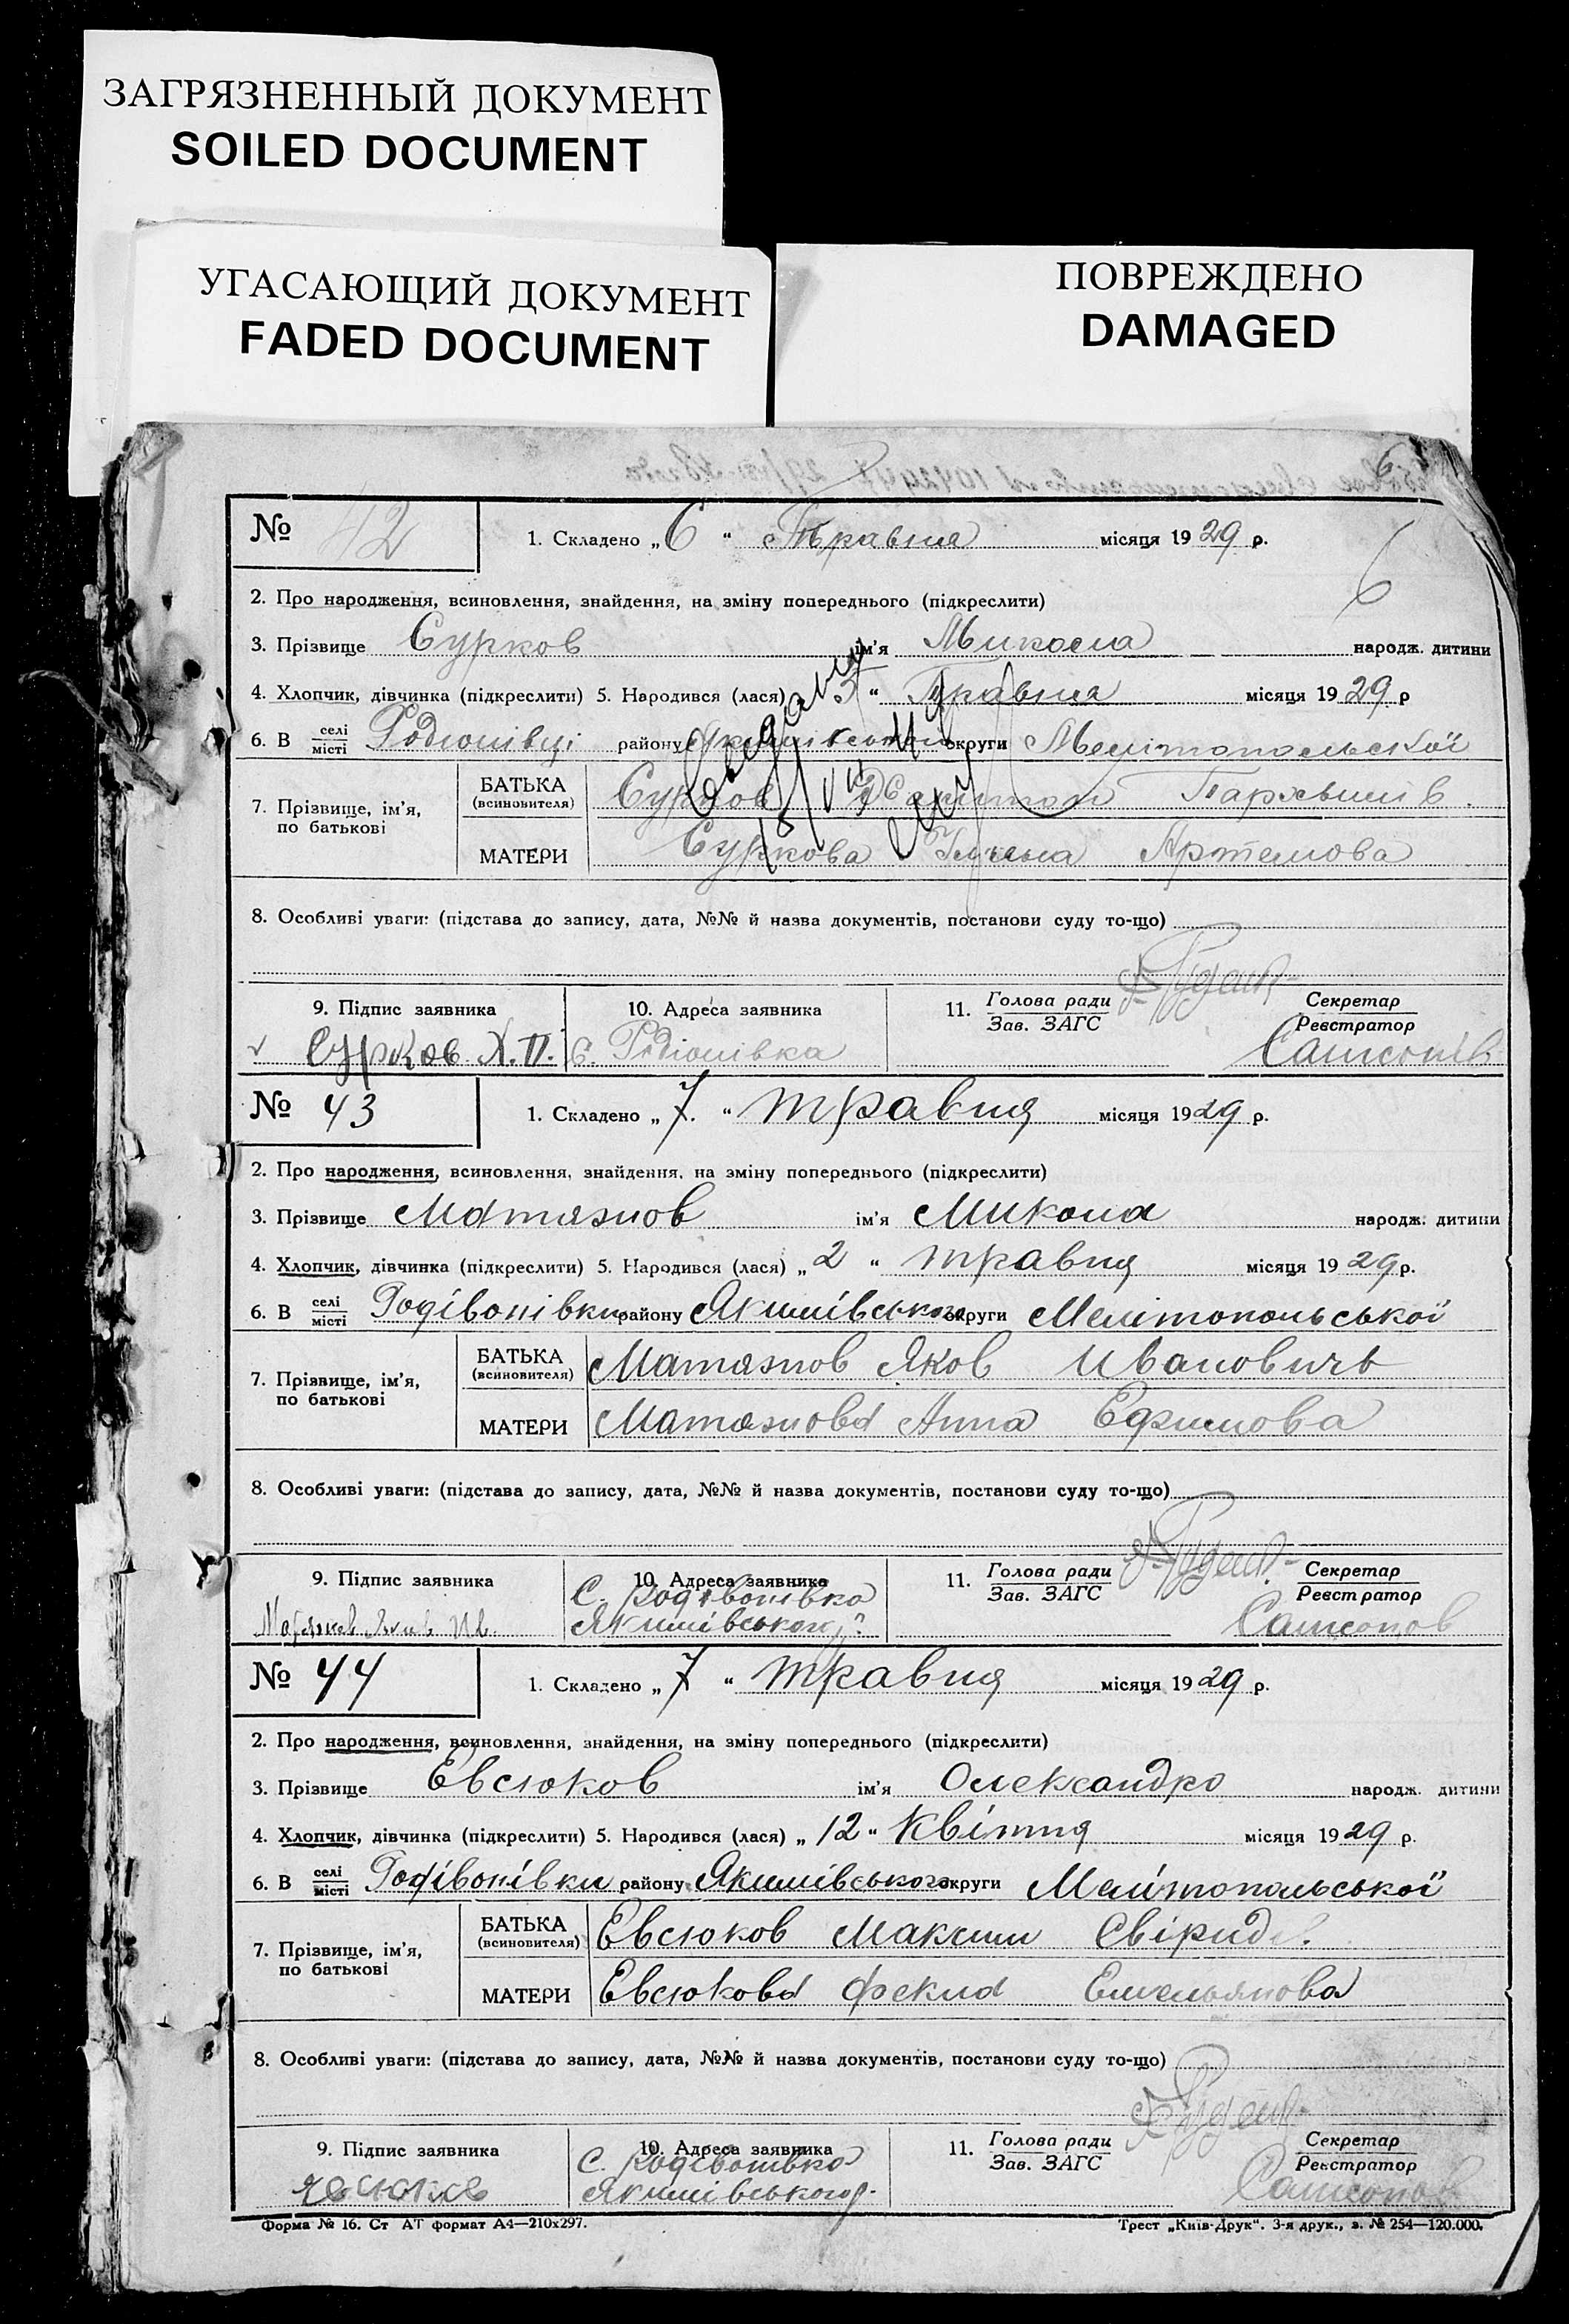 ЗАГРЯЗНЕННЫЙ ДОКУМЕНТ
SOILED DOCUMENT
УГАСАЮЩИЙ ДОКУМЕНТ
FADED DOCUMENT
ПОВРЕЖДЕНО
DAMAGED
6
№ 42 1. Складено „6“ Травня місяця 1929 р.
6
2. Про народження, всиновлення, знайдення, на зміну попереднього (підкреслити)
3. Прізвище Сурков ім'я Микола народж. дитини
4. Хлопчик, дівчинка (підкреслити) 5. Народився (лася) „3“ Травня місяця 1929 р
6. В селі місті Родіонівці району округи Мелітопольської
7. Прізвище, ім'я, по батькові
БАТЬКА (всиновителя) Сурков
МАТЕРИ Суркова Артемова
8. Особливі уваги: (підстава до запису, дата, №№ й назва документів, постанови суду то-що)
9. Підпис заявника 10. Адреса заявника 11. Голова ради Зав. ЗАГС Секретар Реєстратор
Сурков Х.П. с. Родіонівка Самсонів
№ 43 1. Складено „7.“ травня місяця 1929 р.
2. Про народження, всиновлення, знайдення, на зміну попереднього (підкреслити)
3. Прізвище Матязнов ім'я Микола народж. дитини
4. Хлопчик, дівчинка (підкреслити) 5. Народився (лася) „2“ травня місяця 1929 р.
6. В селі місті Родівонівки району Якимівського округи Мелітопольської
7. Прізвище, ім'я, по батькові
БАТЬКА (всиновителя) Матязнов Яков Ивановичь
МАТЕРИ Матязнова Анна Ефимова
8. Особливі уваги: (підстава до запису, дата, №№ й назва документів, постанови суду то-що)
9. Підпис заявника 10. Адреса заявника 11. Голова ради Зав. ЗАГС Секретар Реєстратор
С. Родівонівка
Якимівського Самсонов
№ 44 1. Складено „7“ травня місяця 1929 р.
2. Про народження, всиновлення, знайдення, на зміну попереднього (підкреслити)
3. Прізвище Евсюков ім'я Олександро народж. дитини
4. Хлопчик, дівчинка (підкреслити) 5. Народився (лася) „12“ Квітня місяця 1929 р.
6. В селі місті Родівонівки району Якимівського округи Мелітопольської
7. Прізвище, ім'я, по батькові
БАТЬКА (всиновителя) Евсюков Максим Свірид.
МАТЕРИ Евсюкова Фекла Емельянова
8. Особливі уваги: (підстава до запису, дата, №№ й назва документів, постанови суду то-що)
9. Підпис заявника 10. Адреса заявника 11. Голова ради Зав. ЗАГС Секретар Реєстратор
С. Родівонівка
Якимівського р. Самсонов
Форма № 16. Ст АТ формат А4—210х297. Трест „Київ-Друк“. 3-я друк., з. № 254—120.000.